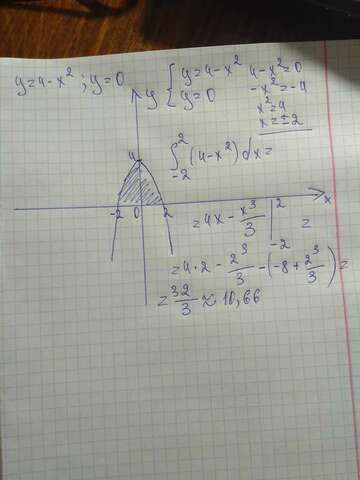 y=4-x² ; y=0
{ y=4-x²
y=0
4-x²=0
-x²=-4
x²=4
x=±2
y
4
-2 0 2 x
∫₋₂² (4-x²)dx=
=4x - x³/3 |₋₂² =
=4·2 - 2³/3 - (-8 + 2³/3) =
= 32/3 ≈ 10,66